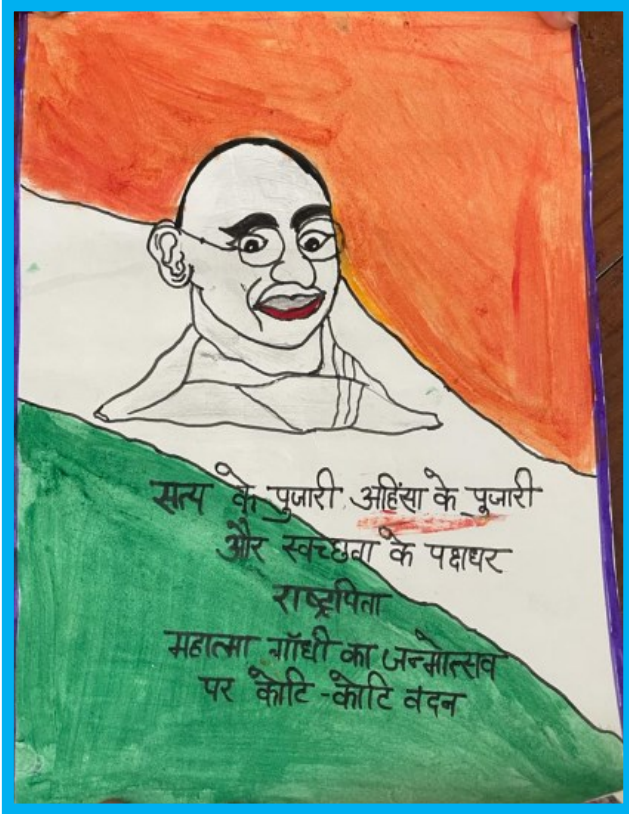 सत्य के पुजारी अहिंसा के पूजारी
और स्वच्छता के पक्षधर
राष्ट्रपिता
महात्मा गाँधी का जन्मोत्सव
पर कोटि-कोटि वंदन